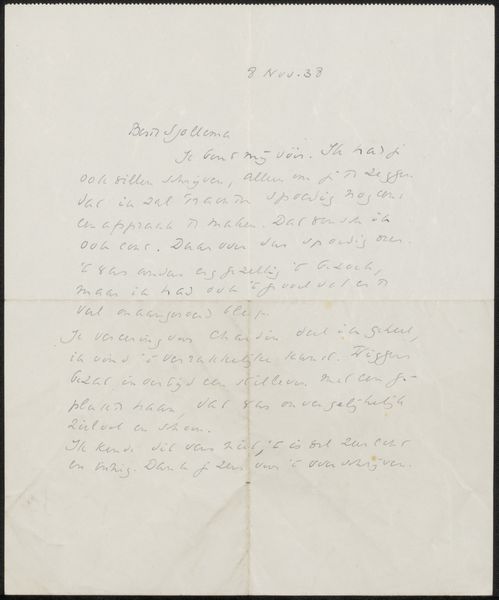 8 Nov. 38
Beste Sjollema
Je bent mij vóór. Ik had je
ook willen schrijven, alleen om je te zeggen
dat ik zal trachten spoedig nog eens
een afspraak te maken. Dat wensch ik
ook eens. Daarover dus spoedig over.
't was anders erg gezellig 't bezoek,
maar ik had ook 't gevoel dat er te
veel onaangeroerd bleef.
Je vereering voor Chardin deel ik geheel,
ik vind 't verrukkelijke kunst.
bezat indertijd een stilleven met een ge-
plukte haan, dat was onvergelijkelijk
zielvol en schoon.
Ik kende dit vers niet, 't is wel zeer echt
en innig. Dank je zeer voor 't overschrijven.